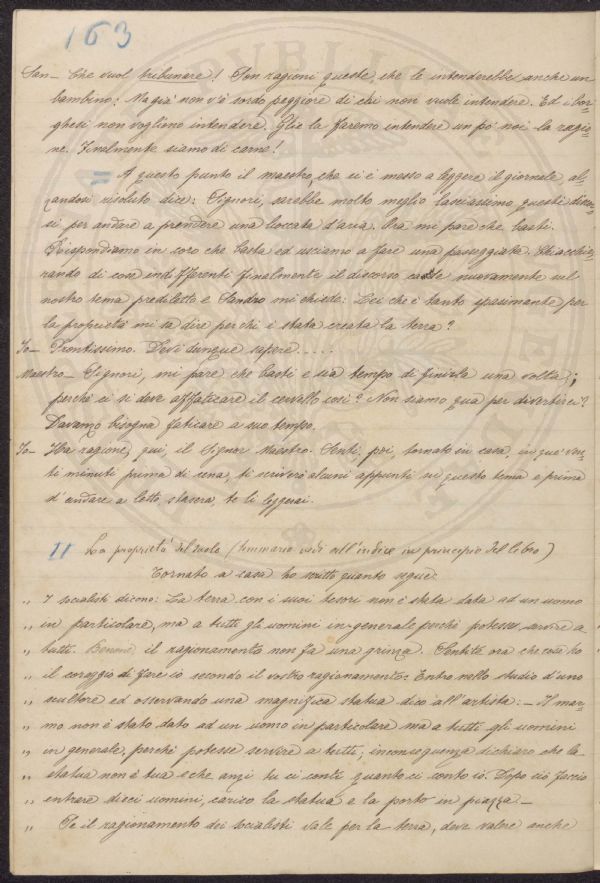 163
San – Che vuol tribunare! Son ragioni queste, che le intenderebbe anche un
bambino: Ma già non v'è sordo peggiore di chi non vuole intendere. Ed i bor-
ghesi non vogliono intendere. Glie la faremo intendere un po' noi la ragio-
ne. Finalmente siamo di carne!
= A questo punto il maestro, che si è messo a leggere il giornale, al-
zandosi risoluto dice: Signori, sarebbe molto meglio lasciassimo questi discor-
si per andare a prendere una boccata d'aria. Ora mi pare che basti.
Rispondiamo in coro che basta ed usciamo a fare una passeggiata. Chiacchie-
rando di cose indifferenti finalmente il discorso cadde nuovamente sul
nostro tema prediletto e Sandro mi chiede: Lei che è tanto spasimante per
la proprietà mi sa dire per chi è stata creata la terra?
Io – Prontissimo. Devi dunque sapere.....
Maestro – Signori, mi pare che basti e sia tempo di finirla una volta;
perché ci si deve affaticare il cervello così? Non siamo qua per divertirci?
Davanzo bisogna faticare a suo tempo.
Io – Ha ragione, qui, il Signor Maestro. Senti, poi, tornato in casa, in que' ven-
ti minuti prima di cena, ti scriverò alcuni appunti su questo tema e prima
d'andare a letto, stasera, te li leggerai.
11 La proprietà del suolo (Sommario vedi all'indice in principio del libro)
Tornato a casa ho scritto quanto segue:
„ I socialisti dicono: La terra con i suoi tesori non è stata data ad un uomo
„ in particolare, ma a tutti gli uomini in generale perché potesse servire a
„ tutti. Benone, il ragionamento non fa una grinza. Sentite ora che cosa ho
„ il coraggio di fare io secondo il vostro ragionamento: Entro nello studio d'uno
„ scultore ed osservando una magnifica statua dico all'artista: – Il mar-
„ mo non è stato dato ad un uomo in particolare ma a tutti gli uomini
„ in generale, perché potesse servire a tutti; inconseguenza dichiaro che la
„ statua non è tua e che anzi tu ci conti quanto ci conto io. Dopo ciò faccio
„ entrare dieci uomini, carico la statua e la porto in piazza –
„ Se il ragionamento dei socialisti vale per la terra, deve valere anche